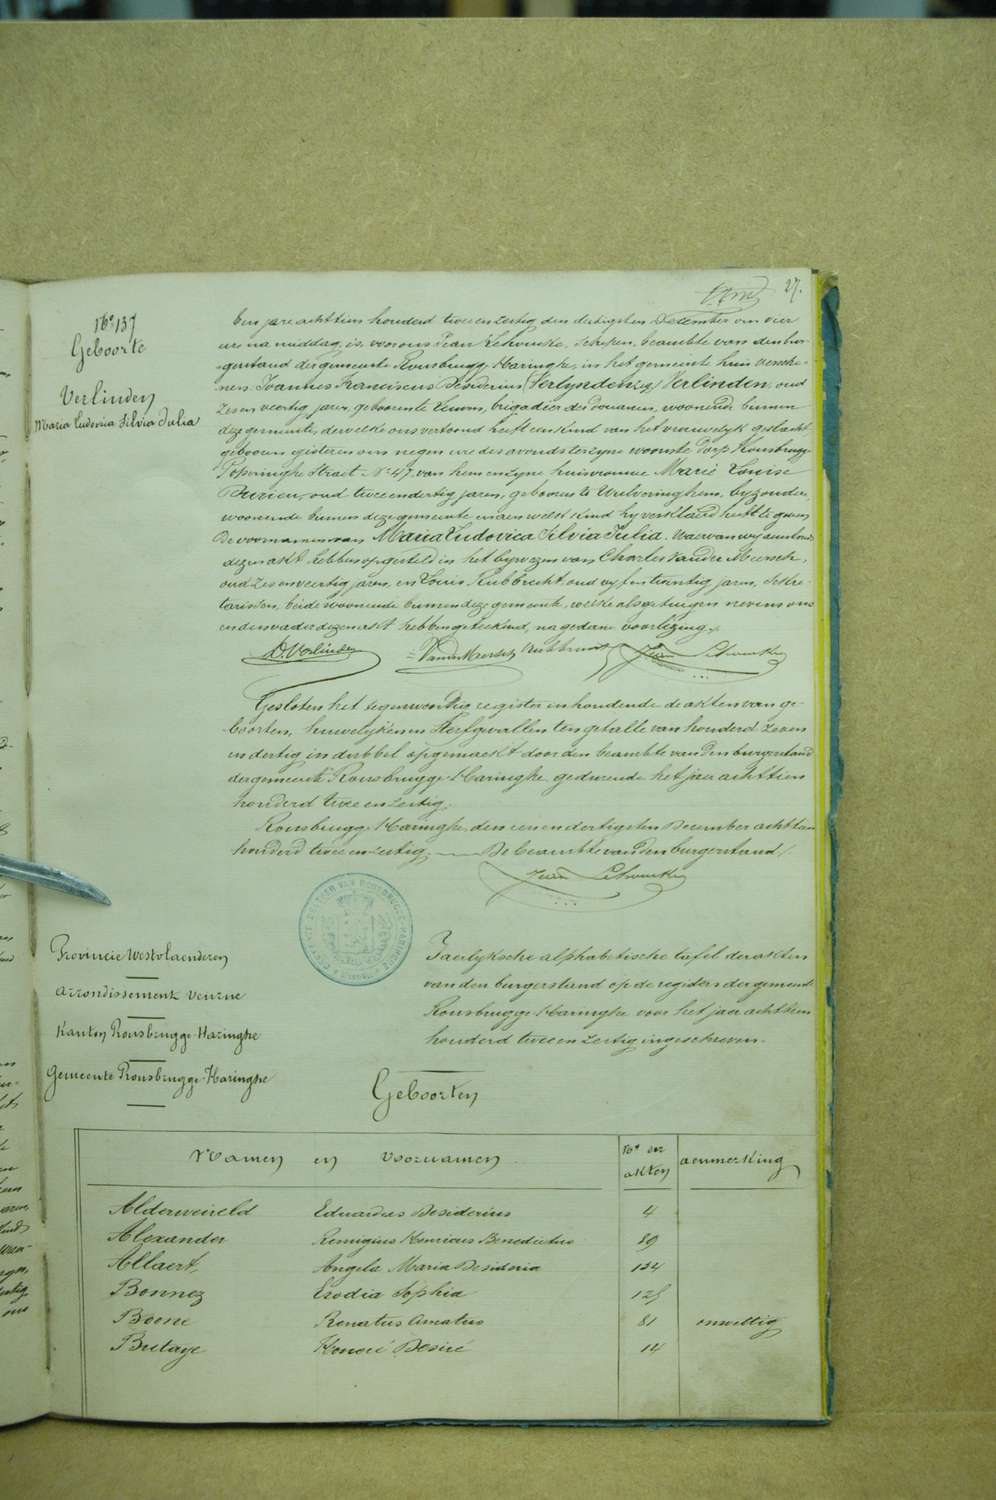 27.
No 137
Geboorte
Verlinden
Maria Ludovica Silvia Julia
Den jare achttien honderd twee en zestig den dertigsten December om vier
ure na middag, is, voor ons Jean Schepen, beambte van den bur-
gerstand der gemeente Rousbrugge-Haringhe, in het gemeente huis versche-
nen Joannes Franciscus Desiderius Verlinden, oud
zes en veertig jaren, geboren te brigadier der Douanen, woonende binnen
deze gemeente, dewelke ons vertoond heeft een kind van het vrouwelyk geslacht
geboren gisteren om negen ure des avonds ter zyne woonste Dorp Rousbrugge
Poperinghe Straet No 47 van hem en zyne huisvrouwe Marie Louise
oud twee en dertig jaren, geboren te Wulveringhem, byzondere,
woonende binnen deze gemeente en aen welk kind hy verklaerd heeft te geven
de voornamen van Maria Ludovica Silvia Julia. Waervan wy
dezen akt hebben opgesteld in het bywezen van Charles Vander Meersch,
oud zes en veertig jaren, en Louis Rubbrecht oud vyf en twintig jaren, Secre-
tarissen, beide woonende binnen deze gemeente, welke als getuigen nevens ons
en den vader dezen akt hebben geteekend, na gedane voorlezing.
D. Verlinden Vander Meersch Rubbrecht Jean
Gesloten het tegenwoordig register inhoudende de akten van ge-
boorten, huwelyken en Sterfgevallen ten getalle van honderd zeven
en dertig in dubbel opgemaekt door den beambte van den burgerstand
der gemeente Rousbrugge-Haringhe gedurende het jaer achttien
honderd twee en zestig.
Rousbrugge-Haringhe, den een en dertigsten December achttien
honderd twee en zestig. De beambte van den burgerstand,
Jean
Provincie Westvlaenderen
Arrondissement Veurne
Kanton Rousbrugge-Haringhe
Gemeente Rousbrugge-Haringhe
Jaerlyksche alphabetische tafel der akten
van den burgerstand op de registers der gemeente
Rousbrugge-Haringhe voor het jaer achttien
honderd twee en zestig ingeschreven.
Geboorten
Namen en Voornamen No der akten aenmerking
Alderweireld Eduardus Desiderius 4
Alexander Remigius Henricus Benedictus 89
Allaert, Angela Maria Desideria 134
Bonnez Sophia 125
Boene Renatus Amatus 81 onwettig
Butaye Honoré Desiré 14